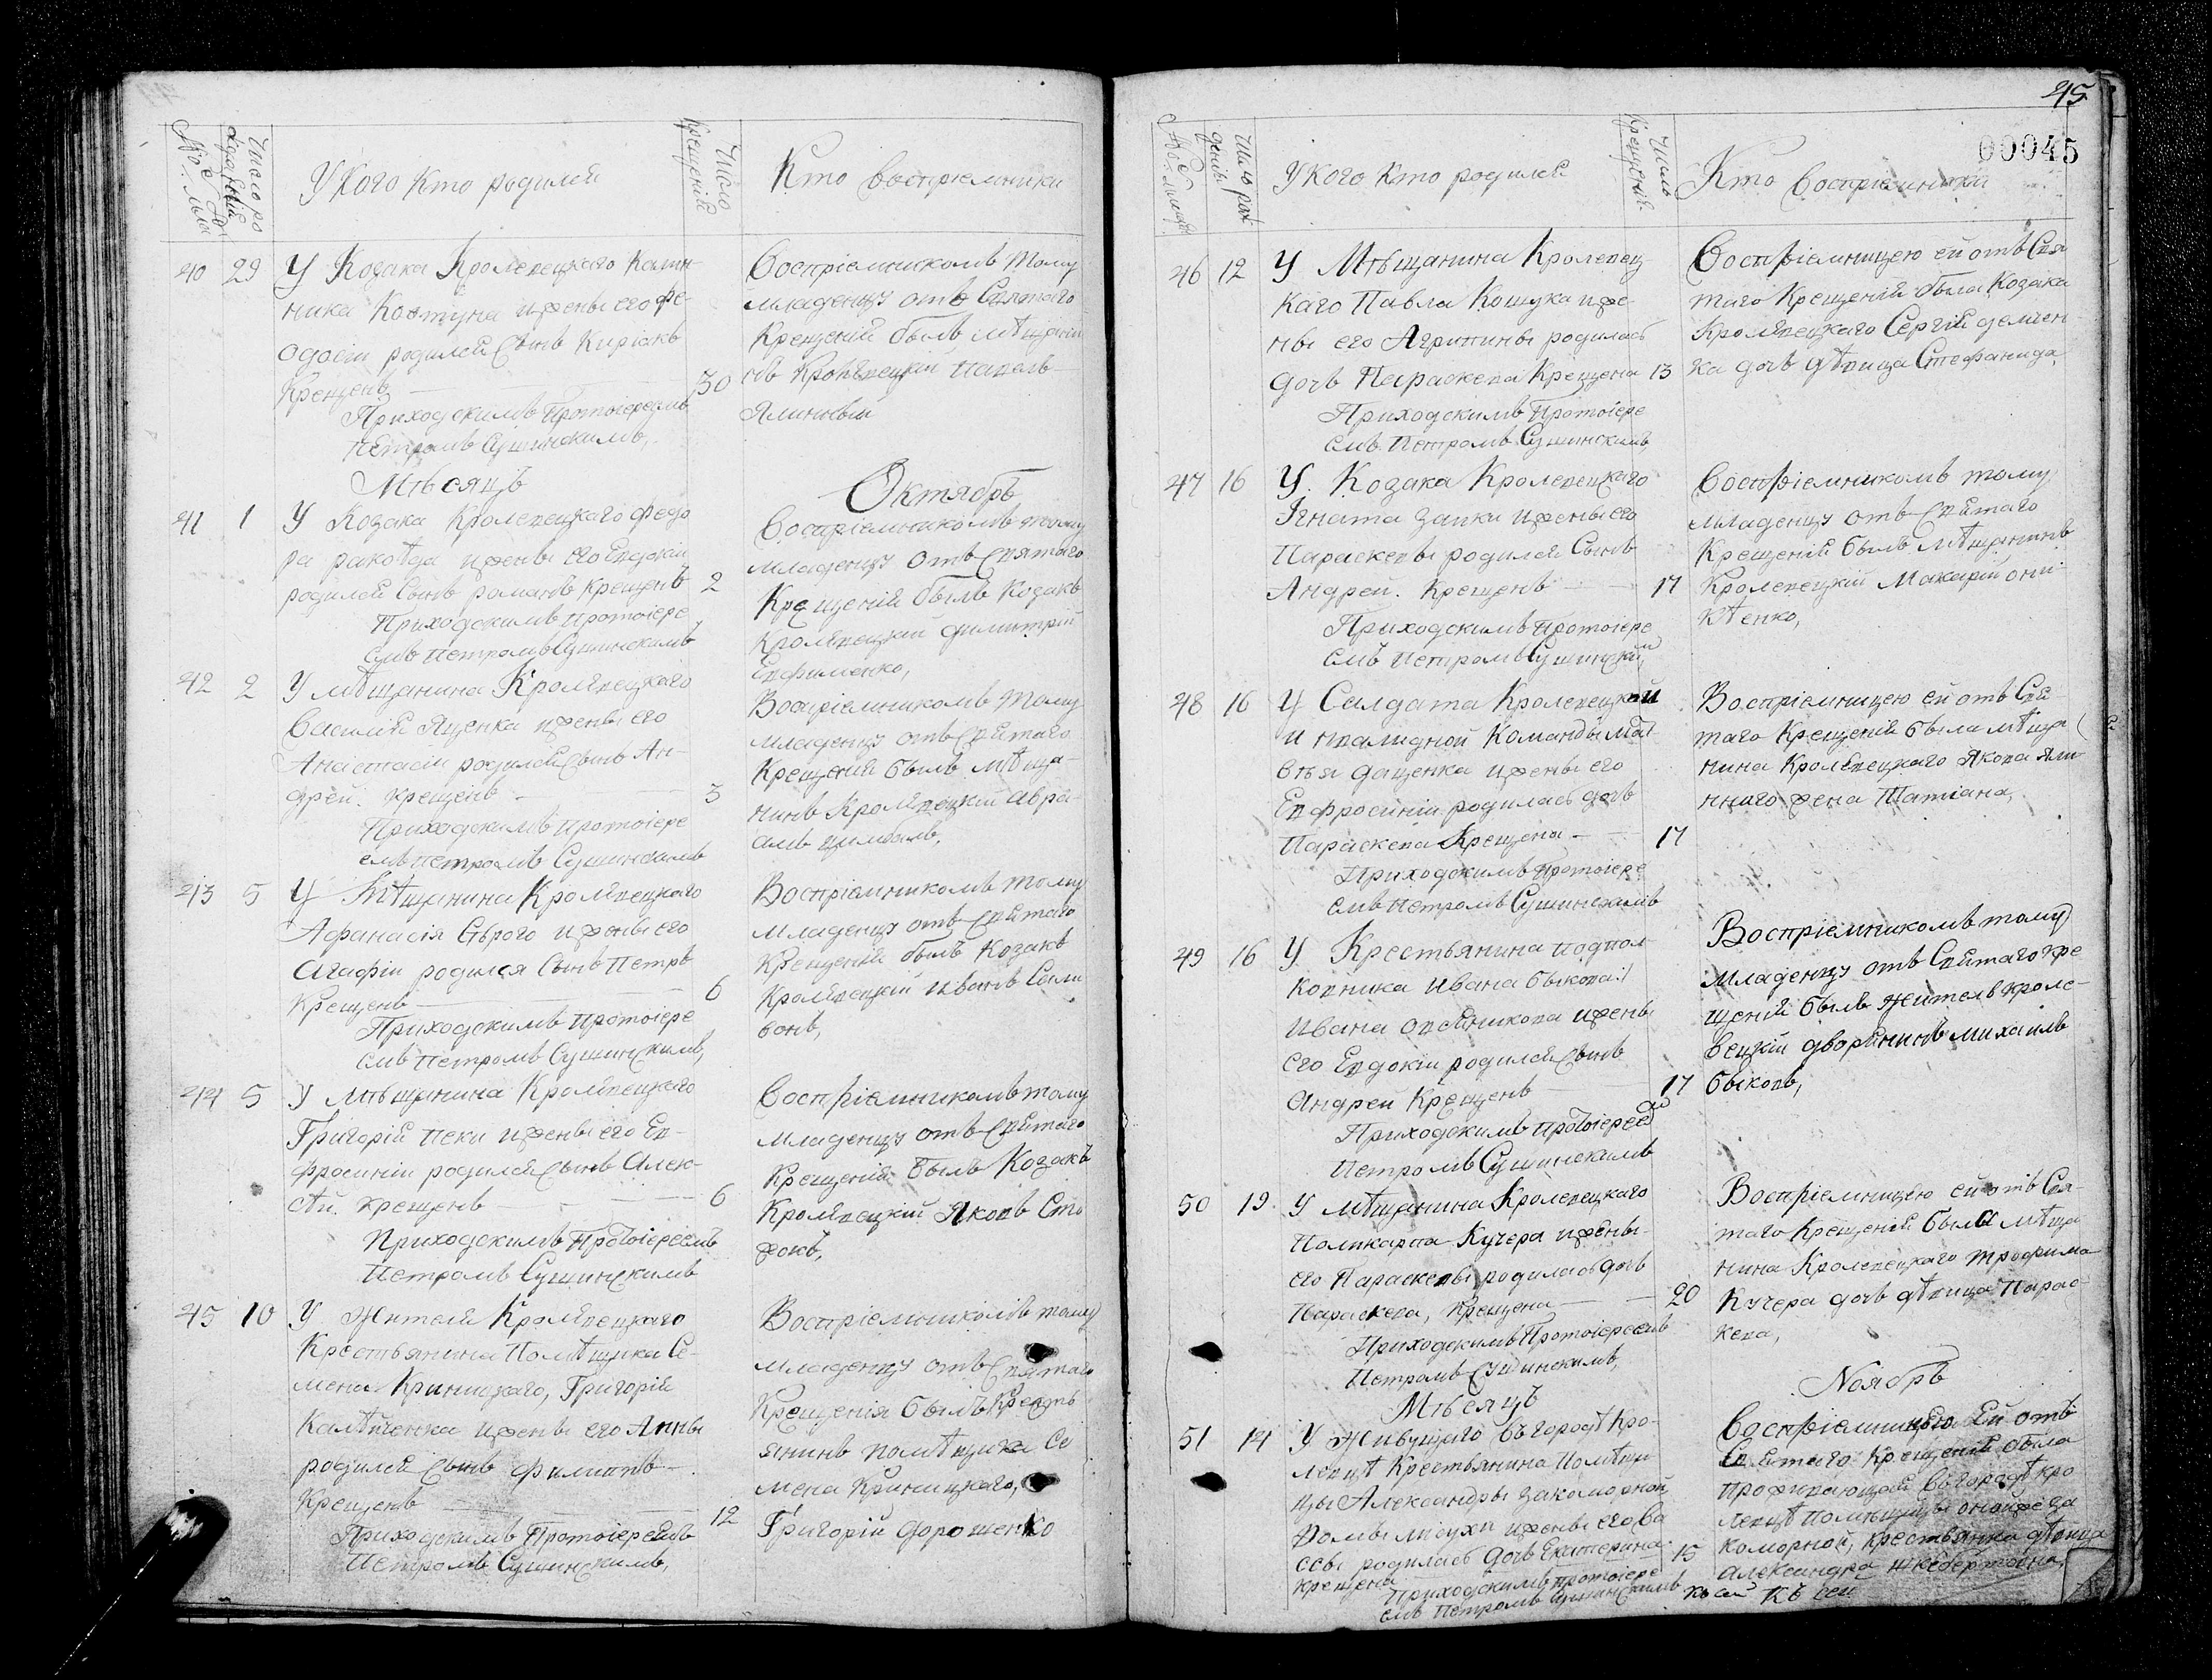 45
00045
№ мла
Число ро
У Кого Кто родился
Число
Крещенія
Кто Воспріемники
40 29 У Козака Кролевецкаго Калин-
ника Ковтуна и жены его Фе-
одосіи родился Сынъ Киріакъ
Крещенъ 30
Приходскимъ Протоіереемъ
Петромъ Сушинскимъ,
Воспріемникомъ тому
младенцу отъ Святаго
Крещенія былъ мѣщани
нъ Кролевецкій Павелъ
Ялинный
Мѣсяцъ Октябрь
41 1 У Козака Кролевецкаго Федо
ра ракоѣда и жены его Евдокіи
родился Сынъ романъ крещенъ 2
Приходскимъ протоіере
емъ петромъ Сушинскимъ
Воспріемникомъ тому
младенцу отъ Святаго
Крещенія былъ Козакъ
Кролевецкій димитрій
Евфименко,
42 2 У мѣщанина Кролевецкаго
Василія Яценка и жены его
Анастасіи родился Сынъ Ан-
дрей. Крещенъ 3
Приходскимъ протоіере
емъ петромъ Сушинскимъ
Воспріемникомъ тому
младенцу отъ Святаго
Крещенія былъ мѣща-
нинъ Кролевецкій авра-
амъ цимбалъ,
43 5 У Мѣщанина Кролевецкаго
Афанасія Сѣрого и жены его
Агафіи родился Сынъ Петръ
Крещенъ 6
Приходскимъ протоіере
емъ петромъ Сушинскимъ,
Воспріемникомъ тому
младенцу отъ Святаго
Крещенія былъ Козакъ
Кролевецкій иванъ Сали
вонъ,
44 5 У мѣщанина Кролевецкаго
Григорія пеки и жены его Ев-
фросиніи родился Сынъ Алек-
сѣй. крещенъ 6
Приходскимъ Протоіереемъ
Петромъ Сушинскимъ
Воспріемникомъ тому
младенцу отъ Святаго
Крещенія былъ Козакъ
Кролевецкій Яковъ Сто
жокъ,
45 10 У Жителя Кролевецкаго
Крестьянина Помѣщика Се-
мена Криницкаго, Григорія
Калѣченка и жены его Анны
родился Сынъ филиппъ
Крещенъ 12
Приходскимъ Протоіереемъ
Петромъ Сушинскимъ,
Воспріемникомъ тому
младенцу отъ Святаго
Крещенія былъ Кресть
янинъ помѣщика Се
мена Криницкаго,
Григорій дорошенко
Число рож
день
У Кого Кто родился
Число
Крещенія
Кто Воспріемники
46 12 У Мѣщанина Кролевец
каго Павла Кошука и же
ны его Агрипины родилась
дочь Параскева Крещена 13
Приходскимъ Протоіере
емъ Петромъ Сушинскимъ,
Воспріемницею ей отъ Свя
таго Крещенія была Козака
Кролевецкаго Сергія демчен
ка дочь дѣвица Стефанида
47 16 У Козака Кролевецкаго
Ігната Заики и жены его
Параскевы родился Сынъ
Андрей. Крещенъ 17
Приходскимъ Протоіере
емъ петромъ Сушинским
Воспріемникомъ тому
младенцу отъ Святаго
Крещенія былъ мѣщанинъ
Кролевецкій Макарій они
кѣенко,
48 16 У Салдата Кролевецкой
инвалидной Команды мат
вѣя даценка и жены его
Евфросиніи родилась дочь
Параскева Крещена 17
Приходскимъ Протоіере
емъ петромъ Сушинскимъ
Воспріемницею ей отъ Свя-
таго Крещенія была мѣща
нина Кролевецкаго Якова Яли
ннаго жена Татіана,
49 16 У Крестьянина подпол
ковника ивана быкова:/
Ивана овсяникова и жены
его Евдокіи родился Сынъ
Андрей Крещенъ 17
Приходскимъ протоіерее
Петромъ Сушинскимъ
Воспріемникомъ тому
младенцу отъ Святаго Кре
щенія былъ житель кроле-
вецкій дворянинъ михаилъ
быковъ,
50 19 У мѣщанина Кролевецкаго
Поликарпа Кучера и жены
его Параскевы родилась дочь
Параскева, Крещена 20
Приходскимъ Протоіереемъ
Петромъ Сушинскимъ,
Воспріемницею ей отъ Свя-
таго Крещенія была мѣща
нина Кролевецкаго трофима
Кучера дочь дѣвица Парас-
кева,
Мѣсяцъ Ноябрь
51 14 У Живущаго въ городѣ Кро-
левцѣ Крестьянина Помѣщи
цы Александры закоморной
Фомы лисухи и жены его Ва
ссы родилась дочь Екатерина.
крещена 15
Приходскимъ протоіере
емъ Петромъ Сушинскимъ
Воспріемницею Ей отъ
Святаго Крещенія была
проживающая въ городѣ кро
левцѣ Помѣщицы оной же за
коморной, крестьянка дѣвица
александра
Къ сей